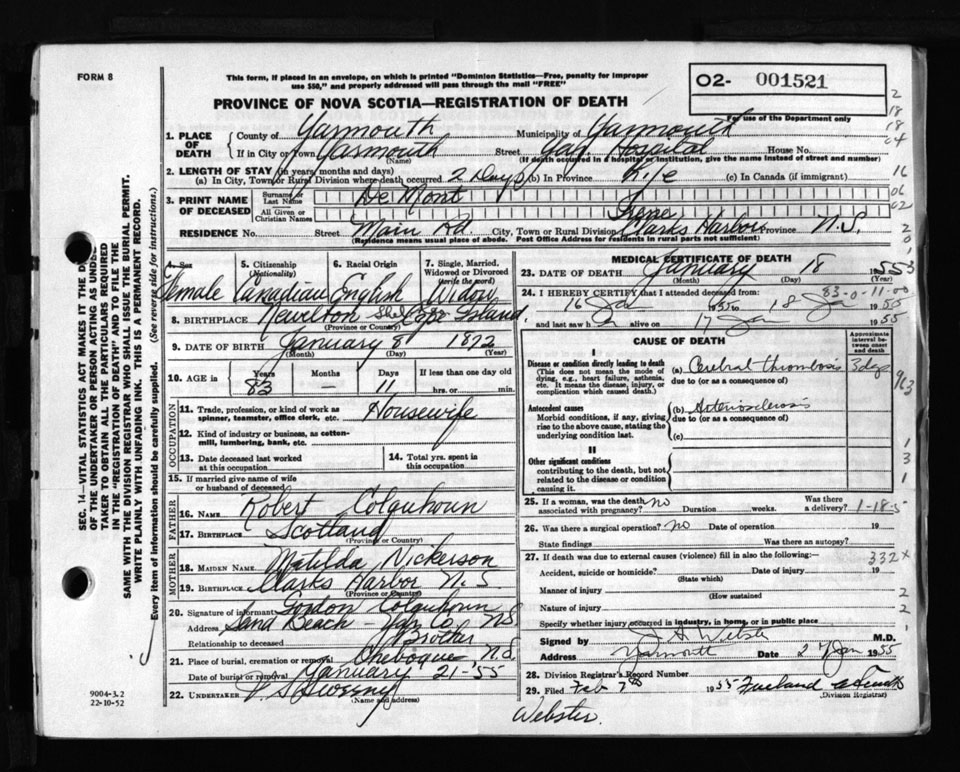 FORM 8
This form, if placed in an envelope, on which is printed "Dominion Statistics—Free, penalty for improper
use $50," and properly addressed will pass through the mail "FREE"
02- 001521
For use of the Department only
PROVINCE OF NOVA SCOTIA—REGISTRATION OF DEATH
1. PLACE OF DEATH County of Yarmouth Municipality of Yarmouth
If in City or Town Yarmouth Street Yar. Hospital House No.
(Name) (If death occurred in a hospital or institution, give the name instead of street and number)
2. LENGTH OF STAY (in years months and days)
(a) In City, Town or Rural Division where death occurred 2 Days (b) In Province Life (c) In Canada (if immigrant)
3. PRINT NAME OF DECEASED Surname or Last Name De Mont
All Given or Christian Names Irene
RESIDENCE No. Street Main Rd. City, Town or Rural Division Clarks Harbor Province N.S.
(Residence means usual place of abode. Post Office Address for residents in rural parts not sufficient)
4. Sex Female
5. Citizenship (Nationality) Canadian
6. Racial Origin English
7. Single, Married, Widowed or Divorced (write the word) Widow
8. BIRTHPLACE Newellton Shel Cape Island.
(Province or Country)
9. DATE OF BIRTH January 8 1872
(Month) (Day) (Year)
10. AGE in Years 83 Months — Days 11 If less than one day
hrs. or min.
OCCUPATION
11. Trade, profession, or kind of work as spinner, teamster, office clerk, etc. Housewife
12. Kind of industry or business, as cotton-mill, lumbering, bank, etc.
13. Date deceased last worked at this occupation
14. Total yrs. spent in this occupation
15. If married give name of wife or husband of deceased
FATHER
16. NAME Robert Colquhoun
17. BIRTHPLACE Scotland
(Province or Country)
MOTHER
18. MAIDEN NAME Matilda Nickerson
19. BIRTHPLACE Clarks Harbor N.S
(Province or Country)
20. Signature of informant Gordon Colquhoun
Address Sand Beach - Yar. Co. NS
Relationship to deceased Brother
21. Place of burial, cremation or removal Chebogue N.S.
Date of burial or removal January 21-'55
22. UNDERTAKER Sweeny
(Name and address)
MEDICAL CERTIFICATE OF DEATH
23. DATE OF DEATH January 18 1955
(Month) (Day) (Year)
83-0-11-00
24. I HEREBY CERTIFY that I attended deceased from
16 Jan 1955 to 18 Jan 1955
and last saw h alive on 17 Jan 1955
CAUSE OF DEATH
Approximate interval between onset and death
I
Disease or condition directly leading to death
(This does not mean the mode of dying, e.g., heart failure, asthenia, etc. It means the disease, injury, or complication which caused death.)
(a) Cerebral thrombosis 3 days
due to (or as a consequence of)
Antecedent causes
Morbid conditions, if any, giving rise to the above cause, stating the underlying condition last.
(b) Arteriosclerosis
due to (or as a consequence of)
(c)
II
Other significant conditions
contributing to the death, but not related to the disease or condition causing it.
25. If a woman, was the death associated with pregnancy? no Duration weeks. Was there a delivery? 1-18-5
26. Was there a surgical operation? no Date of operation 19
State findings Was there an autopsy?
27. If death was due to external causes (violence) fill in also the following:— 332 x
Accident, suicide or homicide? Date of injury 19
(State which)
Manner of injury
(How sustained)
Nature of injury
Specify whether injury occurred in industry, in home, or in public place
Signed by J A Webster M.D.
Address Yarmouth Date 27 Jan 1955
28. Division Registrar's Record Number
29. Filed Feb 7th 1955
(Division Registrar)
Webster.
SEC. 14—VITAL STATISTICS ACT MAKES IT THE
OF THE UNDERTAKER OR PERSON ACTING AS UNDER-
TAKER TO OBTAIN ALL THE PARTICULARS REQUIRED
IN THE "REGISTRATION OF DEATH" AND TO FILE THE
SAME WITH THE DIVISION REGISTRAR WHO SHALL ISSUE THE BURIAL PERMIT.
WRITE PLAINLY WITH UNFADING INK. THIS IS A PERMANENT RECORD.
Every item of information should be carefully supplied. (See reverse side for instructions.)
9004-3.2
22-10-52